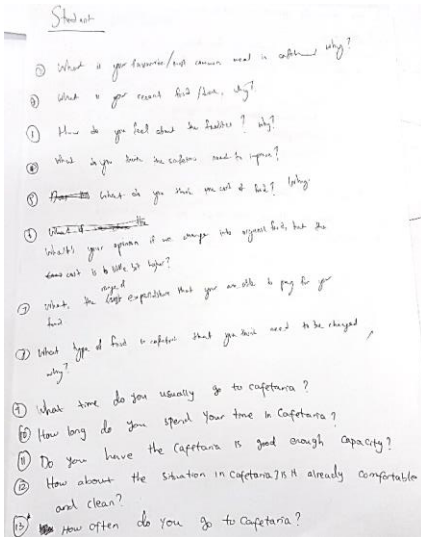 Student
① What is your favourite/most common meal in cafeteria? why?
② What is your recent food /, why?
① How do you feel about the facilities? why?
④ What do you think the cafeteria need to improve?
⑤ What do you think the cost of food? Why?
⑥
What's your opinion if we change into organic food, but the
cost is little bit higher?
⑦ What the range of expenditure that you are able to pay for your
food
⑦ What type of food in cafeteria that you think need to be changed
why?
⑨ What time do you usually go to cafetaria?
⑩ How long do you spend your time in Cafetaria?
⑪ Do you have the Cafetaria is good enough capacity?
⑫ How about the situation in cafetaria? is it already comfortable
and clean?
⑬ How often do you go to Cafetaria?